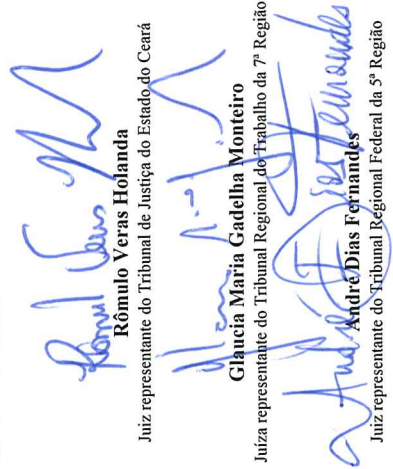 Rômulo Veras Holanda
Juiz representante do Tribunal de Justiça do Estado do Ceará
Glaucia Maria Gadelha Monteiro
Juíza representante do Tribunal Regional do Trabalho da 7ª Região
André Dias Fernandes
André Dias Fernandes
Juiz representante do Tribunal Regional Federal da 5ª Região